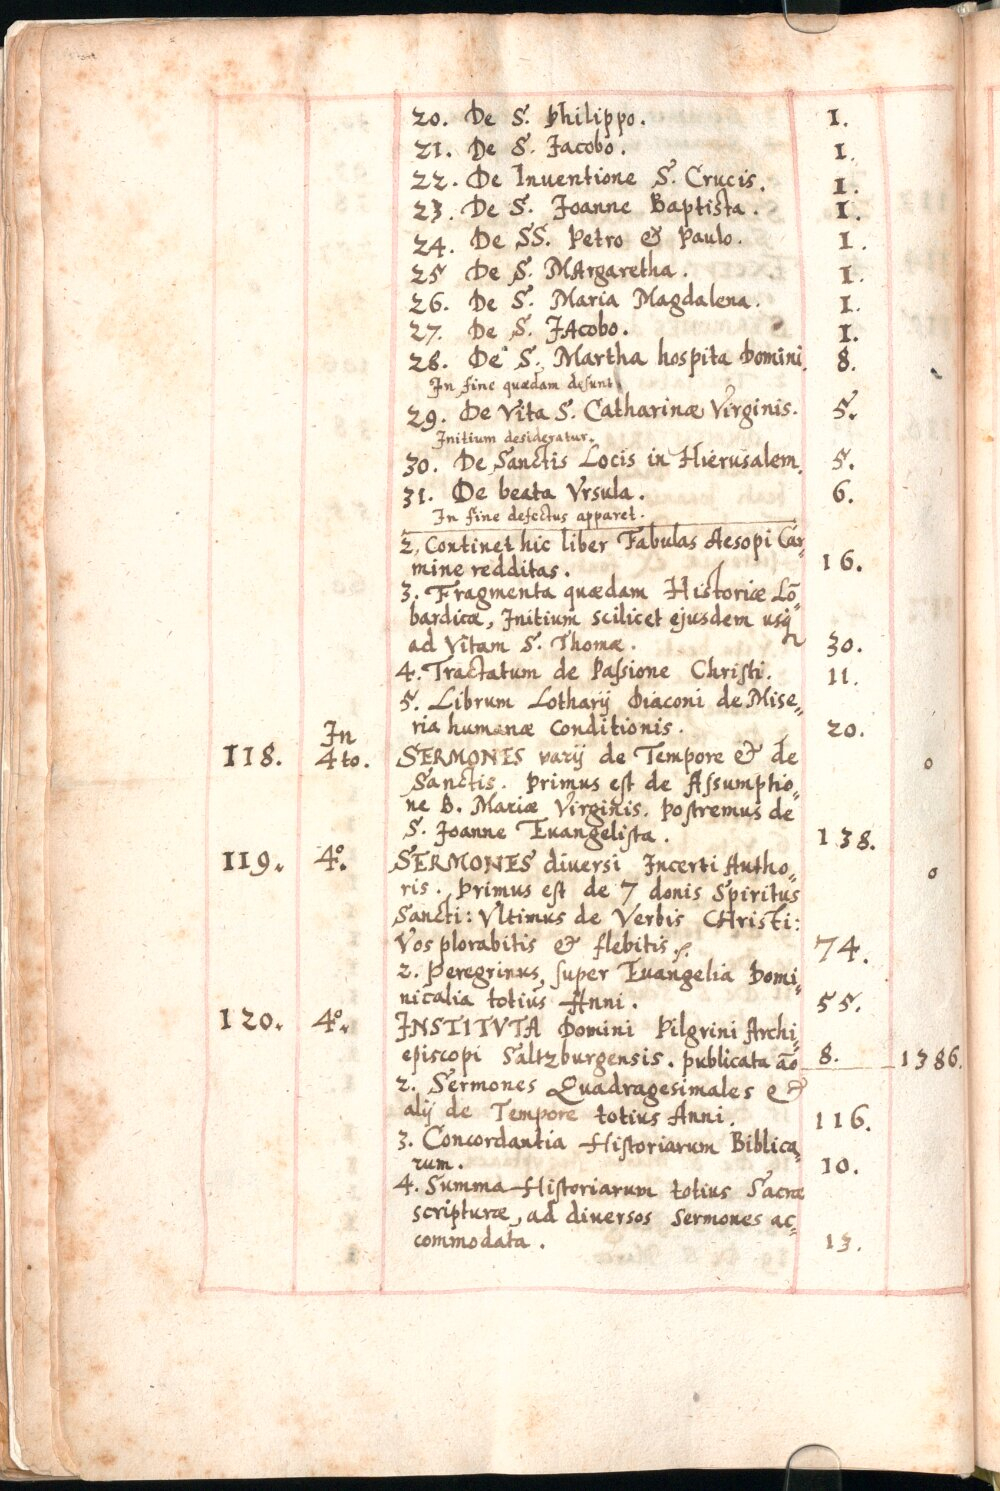 20. De S. Philippo. 1.
21. De S. Jacobo. 1.
22. De Inuentione S. Crucis. 1.
23. De S. Joanne Baptista. 1.
24. De SS. Petro & Paulo. 1.
25 De S. MArgaretha. 1.
26. De S. Maria Magdalena. 1.
27. De S. JAcobo. 1.
28. De S. Martha hospita Domini. 8.
In fine quædam desunt.
29. De Vita S. Catharinæ Virginis. 5.
Initium desideratur.
30. De Sanctis Locis in Hierusalem. 5.
31. De beata Vrsula. 6.
In fine defectus apparet.
2. Continet hic liber Fabulas Aesopi Car„
mine redditas. 16.
3. Fragmenta quædam Historiæ Lō„
bardicæ, Initium scilicet ejusdem usq
ad Vitam S. Thomæ. 30.
4. Tractatum de Paſsione Chriſti. 11.
5. Librum Lotharij Diaconi de Mise„
ria humanæ Conditionis. 20.
118. In 4to. SERMONES varij de Tempore & de 0
Sanctis. Primus eſt de Aſsumptio„
ne B. Mariæ Virginis. Poſtremus de
S. Joanne Euangeliſta. 138.
119. 4º. SERMONES diuersi Incerti Autho„ 0
ris. Primus eſt de 7 donis Spiritus
Sancti: Vltimus de Verbis CHristi:
Vos plorabitis & flebitis. 74.
2. Peregrinus, ſuper Euangelia Domi„
nicalia totius Anni. 55.
120. 4º. INSTITVTA Domini Pilgrini Archi„
episcopi Saltzburgensis. Publicata aō 8. 1386.
2. Sermones Quadragesimales &
alij de Tempore totius Anni. 116.
3. Concordantia Hiſtoriarum Biblica„
rum. 10.
4. Summa Hiſtoriarum totius Sacræ
scripturæ, ad diuersos Sermones ac„
commodata. 13.